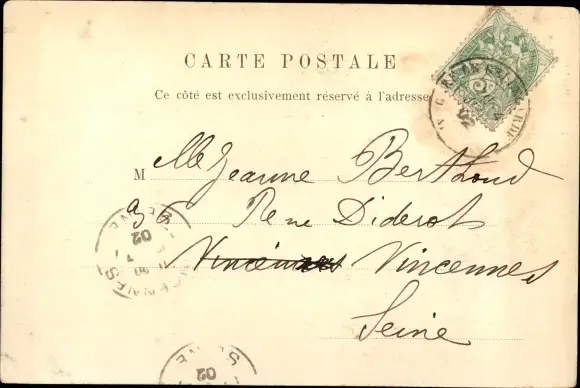 CARTE POSTALE
Ce côté est exclusivement réservé à l'adresse
M elle Jeanne Berthoud
36 Rue Diderot
Vincennes Vincennes
Seine
VINCENNES
SEINE
02
02
02